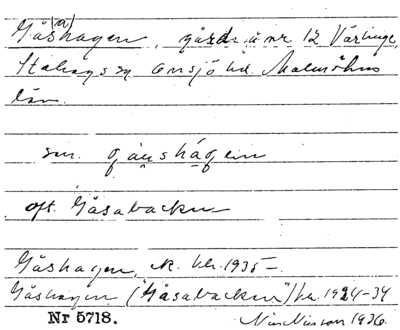 (a)
Gåshagen, gård å nr 12 Värlinge,
Stehags sn Onsjö hd. Malmöhus
län.
sm. gåu̯shāgen
oft. Gåsabacken
Gåshagen, ek. bl. 1935–
Gåshagen ("Gåsabacken") hr. 1924–34
Nr 5718. Nils Nilsson 1936.